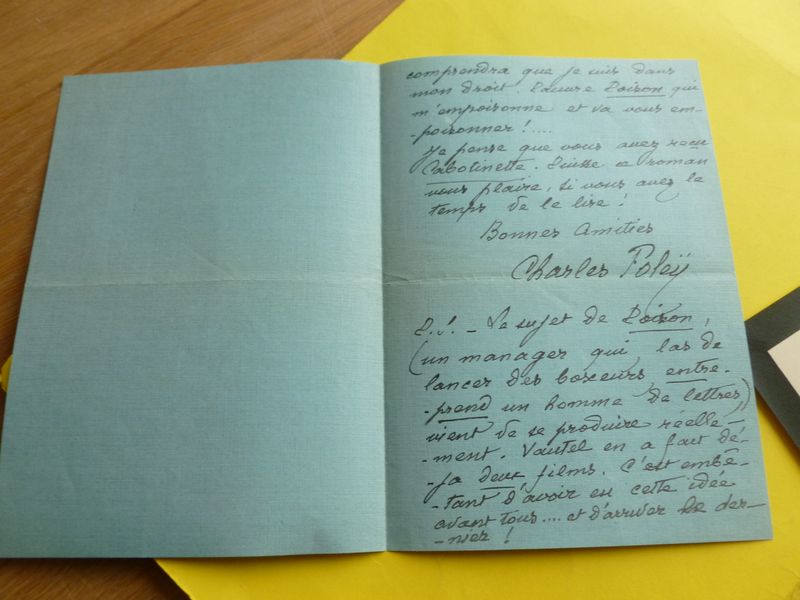 comprendra que je suis dans
mon droit. Pauvre Poison qui
m'empoisonne et va vous em-
-poisonner !....
Je pense que vous avez reçu
Cabotinette. Puisse ce roman
vous plaire, si vous avez le
temps de le lire !
Bonnes Amitiés
Charles Foleÿ
P.S. - Le sujet de Poison,
(un manager qui las de
lancer des boxeurs entre-
-prend un homme de lettres)
vient de se produire réelle-
-ment. Vautel en a fait dé-
-jà deux films. C'est embê-
-tant d'avoir eu cette idée
avant tous.... et d'arriver le der-
-nier !